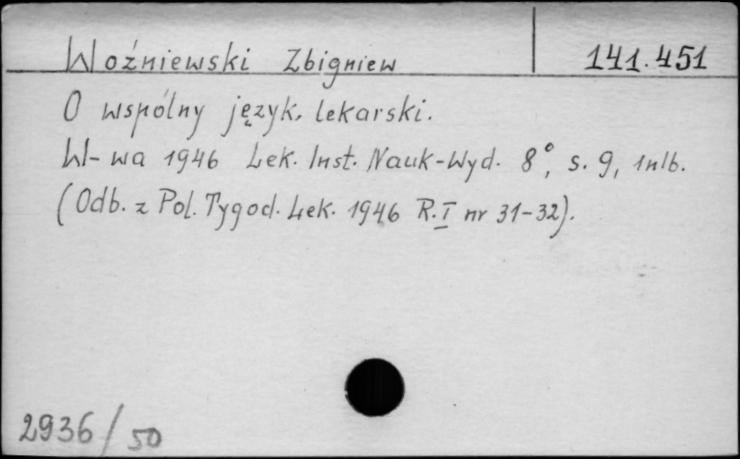 Woźniewski Zbigniew 141.451
O wspólny język. lekarski.
W-wa 1946 Lek. Inst. Nauk-Wyd. 8°, s. 9, 1nlb.
(Odb. z Pol. Tygod. Lek. 1946 R. I nr 31-32).
2936/50